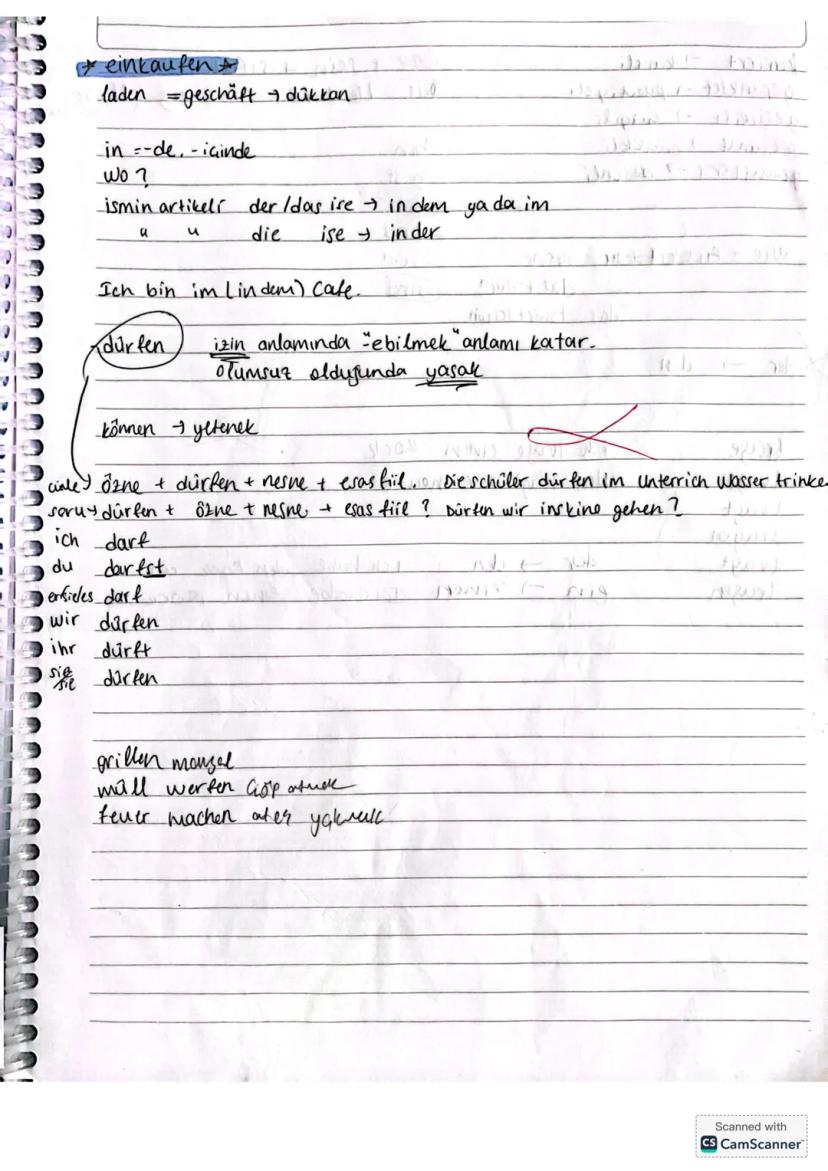 * einkaufen *
laden = geschäft → dükkan
in = -de, -icinde
wo ?
ismin artikeli der / das ise → in dem ya da im
" " die ise → in der
Ich bin im (in dem) Cafe.
dürfen izin anlamında "-ebilmek" anlamı katar.
olumsuz olduğunda yasak
können → yetenek
cümle → özne + dürfen + nesne + esas fiil. Die schüler dürfen im unterrich wasser trinke
soru → dürfen + özne + nesne + esas fiil ? Dürfen wir ins kino gehen ?
ich darf
du darfst
er/sie/es darf
wir dürfen
ihr dürft
sie dürfen
sie
grillen mangal
müll werfen Çöp atmak
feuer machen ateş yakmak
Scanned with
CS CamScanner